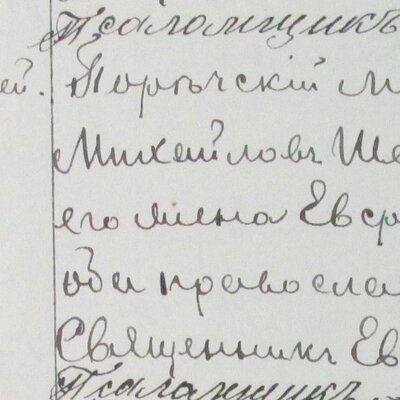 Псаломщикъ
ей. Порѣчскій м
Михайловъ Ше
его жена Евф
оба правосла
Священникъ Ев
Псаломщикъ